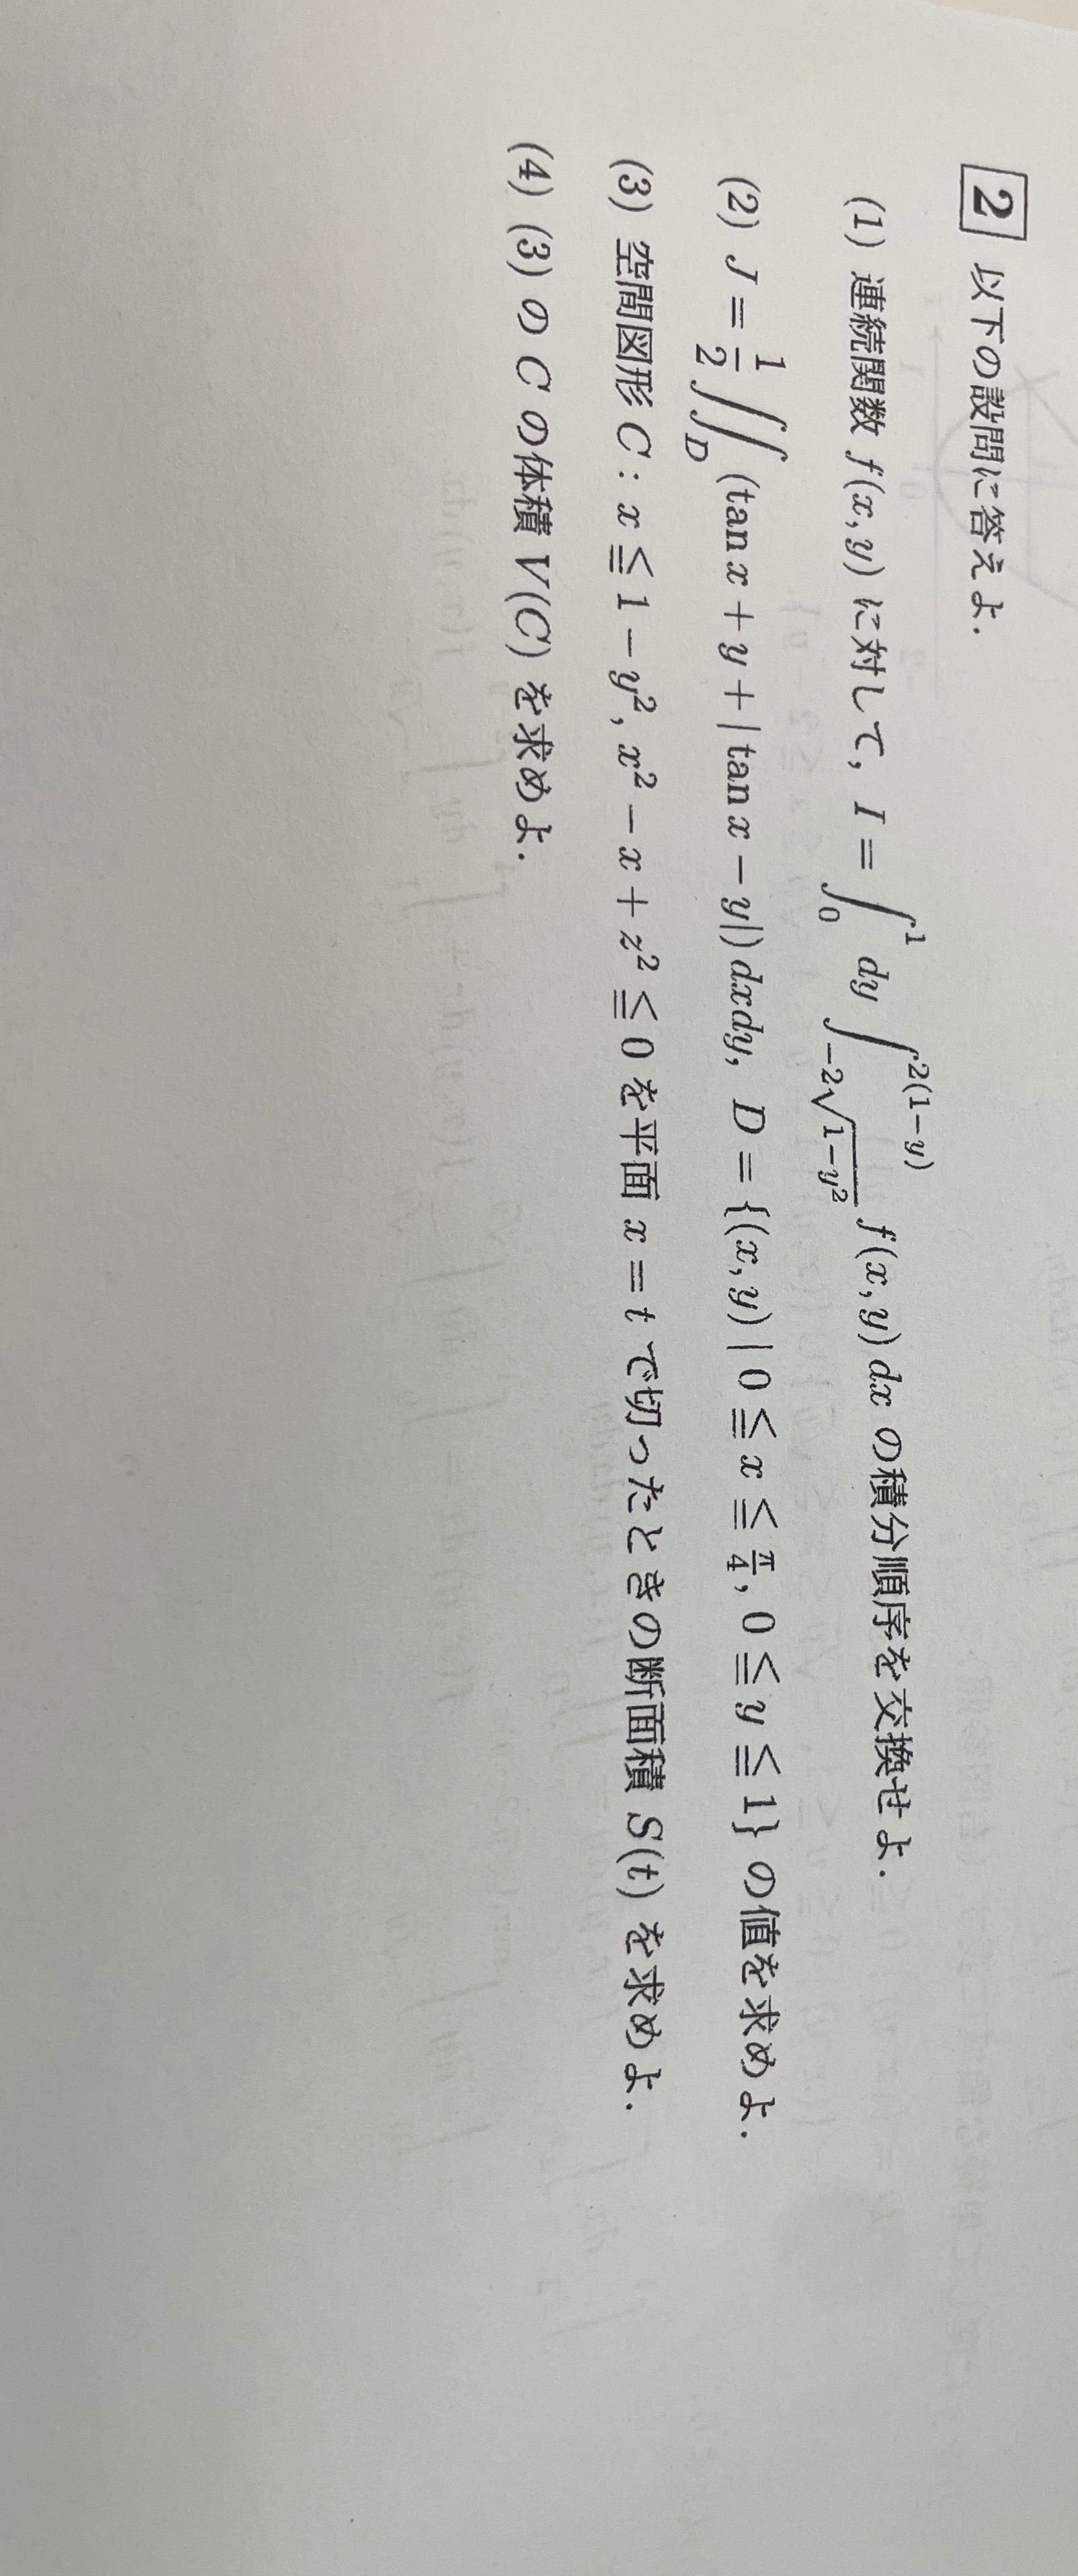 2 以下の設問に答えよ.
(1) 連続関数 f(x, y) に対して, I = ∫_0^1 dy ∫_{-2√(1-y²)}^{2(1-y)} f(x, y) dx の積分順序を交換せよ.
(2) J = 1/2 ∬_D (tan x + y + |tan x − y|) dxdy, D = {(x, y) | 0 ≦ x ≦ π/4, 0 ≦ y ≦ 1} の値を求めよ.
(3) 空間図形 C : x ≦ 1 − y², x² − x + z² ≦ 0 を平面 x = t で切ったときの断面積 S(t) を求めよ.
(4) (3) の C の体積 V(C) を求めよ.